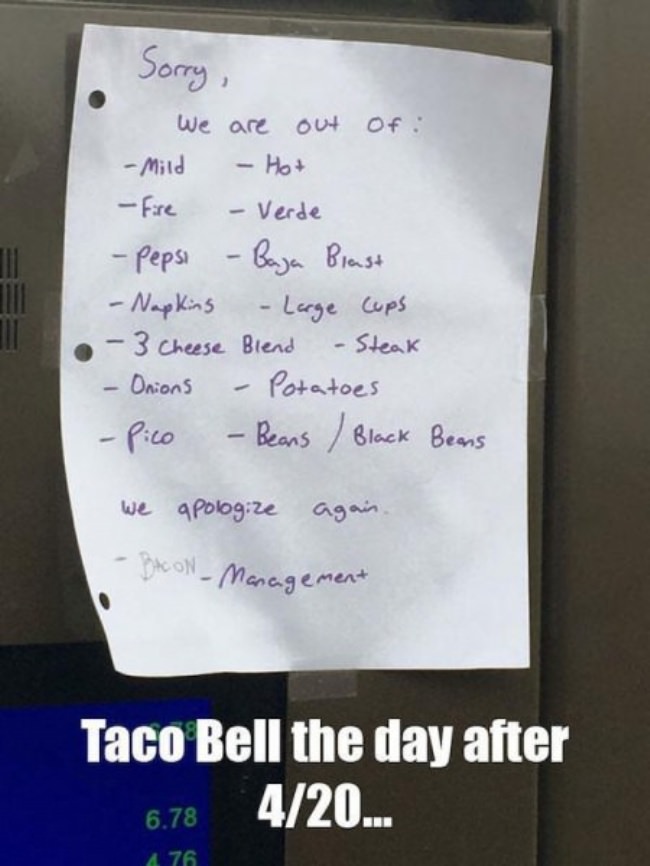 Sorry,
We are out of:
- Mild - Hot
- Fire - Verde
- Pepsi - Baja Blast
- Napkins - Large Cups
- 3 Cheese Blend - Steak
- Onions - Potatoes
- Pico - Beans / Black Beans
We apologize again.
- BACON - Management
Taco Bell the day after
4/20...
6.78
4.76